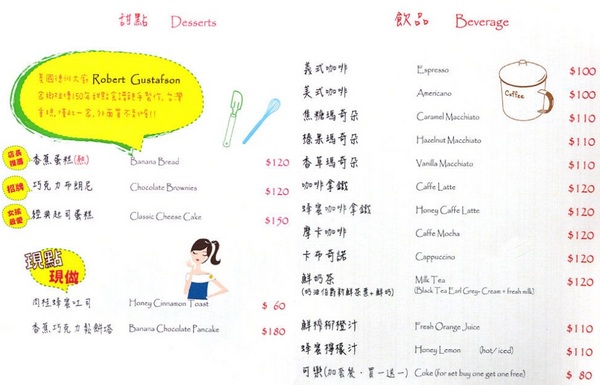 甜點 Desserts
美國德州大廚 Robert Gustafson
店長推薦 香蕉蛋糕(熱) Banana Bread $120
招牌 巧克力布朗尼 Chozolate Brownies $120
女孩最愛 經典起司蛋糕 Classic Cheese Cake $150
現點
現做
肉桂蜂蜜吐司 Honey Cinnamon Toast $ 60
香蕉巧克力鬆餅塔 Banana Chocolate Pancake $180
飲品 Beverage
義式咖啡 Espresso $100
美式咖啡 Americano $100
Coffee
焦糖瑪奇朵 Caramel Macchiato $110
榛果瑪奇朵 Hazelnut Macchiato $110
香草瑪奇朵 Vanilla Macchiato $110
咖啡拿鐵 Caffe Latte $120
蜂蜜咖啡拿鐵 Honey Caffe Latte $120
摩卡咖啡 Caffe Mocha $120
卡布奇諾 Cappuccino $120
鮮奶茶 Milk Tea $120
(奶油伯爵鮮茶葉+鮮奶) (Black Tea Earl Grey- Cream + fresh milk)
鮮榨柳橙汁 Fresh Orange Juice $110
蜂蜜檸檬汁 Honey Lemon (hot/ iced) $110
可樂(加套餐，買一送一) Coke (for set buy one get one free) $ 80